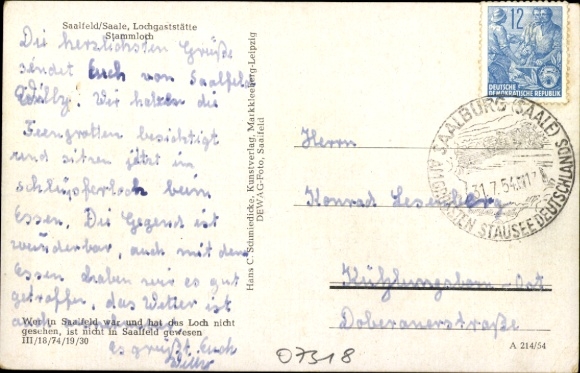 Saalfeld/Saale, Lochgaststätte
Stammloch
Die herzlichsten Grüße
sendet Euch von Saalfeld
Willy. Wir haben die
Feengrotten besichtigt
und sitzen jetzt im
Schlüpferloch beim
Essen. Die Gegend ist
wunderbar, auch mit dem
Essen haben wir es gut
getroffen, das Wetter ist
auch
Wer in Saalfeld war und hat das Loch nicht
gesehen, ist nicht in Saalfeld gewesen
III/18/74/19/30
es grüßt Euch
Willy
Hans C. Schmiedicke, Kunstverlag, Markkleeberg-Leipzig
DEWAG-Foto, Saalfeld
12
DEUTSCHE
DEMOKRATISCHE REPUBLIK
SAALBURG (SAALE)
31.7.54
AM GRÖSSTEN STAUSEE DEUTSCHLANDS
Herrn
Konrad
Kühlungsborn-Ost
Doberanerstraße
07318
A 214/54